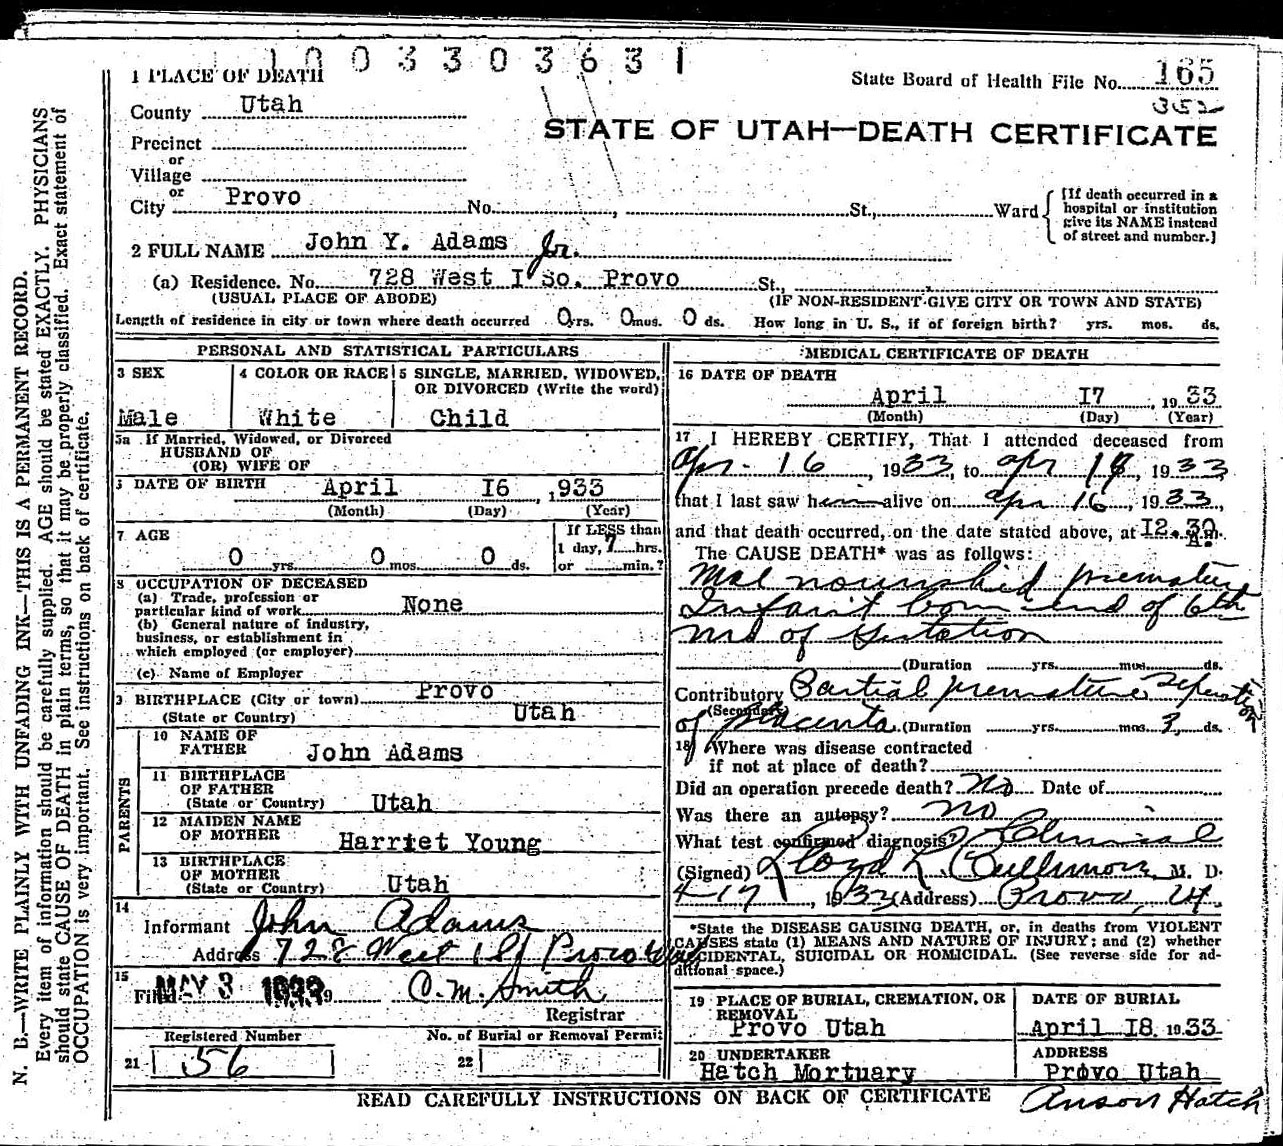 1003303631
1 PLACE OF DEATH
State Board of Health File No. 165
352
County Utah
STATE OF UTAH—DEATH CERTIFICATE
Precinct
or
Village
or
City Provo No. , St., Ward
[If death occurred in a
hospital or institution
give its NAME instead
of street and number.]
2 FULL NAME John Y. Adams Jr.
(a) Residence. No. 728 West I So. Provo St.,
(USUAL PLACE OF ABODE) (IF NON-RESIDENT GIVE CITY OR TOWN AND STATE)
Length of residence in city or town where death occurred 0 yrs. 0 mos. 0 ds. How long in U. S., if of foreign birth? yrs. mos. ds.
PERSONAL AND STATISTICAL PARTICULARS
3 SEX
Male
4 COLOR OR RACE
White
5 SINGLE, MARRIED, WIDOWED,
OR DIVORCED (Write the word)
Child
5a If Married, Widowed, or Divorced
HUSBAND OF
(OR) WIFE OF
DATE OF BIRTH April I6 , 1933
(Month) (Day) (Year)
7 AGE
0 yrs. 0 mos. 0 ds.
If LESS than
1 day, 7 hrs.
or min.?
8 OCCUPATION OF DECEASED
(a) Trade, profession or
particular kind of work None
(b) General nature of industry,
business, or establishment in
which employed (or employer)
(c) Name of Employer
9 BIRTHPLACE (City or town) Provo
(State or Country) Utah
PARENTS
10 NAME OF
FATHER John Adams
11 BIRTHPLACE
OF FATHER
(State or Country) Utah
12 MAIDEN NAME
OF MOTHER Harriet Young
13 BIRTHPLACE
OF MOTHER
(State or Country) Utah
14
Informant John Adams
Address 728 West 1 S Provo Utah
15
Filed MAY 3 1933 O. M. Smith
Registrar
Registered Number No. of Burial or Removal Permit
21 56 22
MEDICAL CERTIFICATE OF DEATH
16 DATE OF DEATH
April I7 , 1933
(Month) (Day) (Year)
17 I HEREBY CERTIFY, That I attended deceased from
Apr - 16 , 1933, to Apr 17, 1933
that I last saw him alive on Apr 16, 1933,
and that death occurred, on the date stated above, at I2.30 A.m.
The CAUSE DEATH* was as follows:
Mal nourished premature
Infant born end of 6th
mo of Gestation
(Duration yrs. mos. ds.
Contributory Partial premature seperation
(Secondary)
of placenta (Duration yrs. mos. 3 ds.
18 Where was disease contracted
if not at place of death?
Did an operation precede death? No Date of
Was there an autopsy? no
What test confirmed diagnosis? Clinical
(Signed) Lloyd L. Cullimore, M. D.
4-17, 1933 (Address) Provo, Ut.
*State the DISEASE CAUSING DEATH, or, in deaths from VIOLENT
CAUSES state (1) MEANS AND NATURE OF INJURY; and (2) whether
ACCIDENTAL, SUICIDAL OR HOMICIDAL. (See reverse side for ad-
ditional space.)
19 PLACE OF BURIAL, CREMATION, OR
REMOVAL
Provo Utah
DATE OF BURIAL
April I8 1933
20 UNDERTAKER
Hatch Mortuary
ADDRESS
Provo Utah
READ CAREFULLY INSTRUCTIONS ON BACK OF CERTIFICATE
Anson Hatch
N. B.—WRITE PLAINLY WITH UNFADING INK—THIS IS A PERMANENT RECORD.
Every item of information should be carefully supplied. AGE should be stated EXACTLY. PHYSICIANS
should state CAUSE OF DEATH in plain terms, so that it may be properly classified. Exact statement of
OCCUPATION is very important. See instructions on back of certificate.